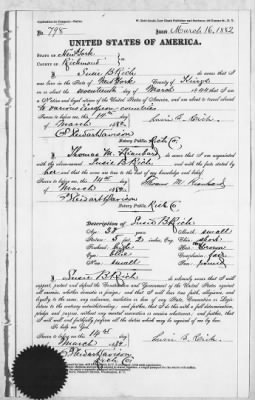 No. 798 Issued March 16, 1882
UNITED STATES OF AMERICA.
STATE OF New York
COUNTY OF Richmond
I, Susie B Rich do swear that I
was born in the State of New York County of Kings
on or about the seventeenth day of March 1844 that I am
a Citizen and legal voter of the United States of America, and am about to travel abroad
to various European countries
Sworn to before me, this 14th day
of March 1882
Notary Public Rich Co.
I, Thomas M. do swear that I am acquainted
with the above-named Susie B Rich and with the facts stated by
her and that the same are true to the best of my knowledge and belief.
Sworn to before me, this 14th day
of March 1882
Notary Public, Rich Co
Description of Susie B Rich
Age: 38 years Mouth: small
Stature: 5 feet 2 inches, Eng. Chin: short
Forehead: high Hair: Brown
Eyes: Blue Complexion: fair
Nose: small Face: round
I, Susie B Rich do solemnly swear that I will
support, protect and defend the Constitution and Government of the United States against
all enemies, whether domestic or foreign; and that I will bear true faith, allegiance, and
loyalty to the same, any ordinance, resolution or law of any State, Convention or Legis-
lature to the contrary notwithstanding; and further, that I do this with a full determination,
pledge and purpose, without any mental reservation or evasion whatsoever; and further, that
I will well and faithfully perform all the duties which may be required of me by law.
So help me God.
Sworn to before me, this 14th
day of March 1882
Rich Co